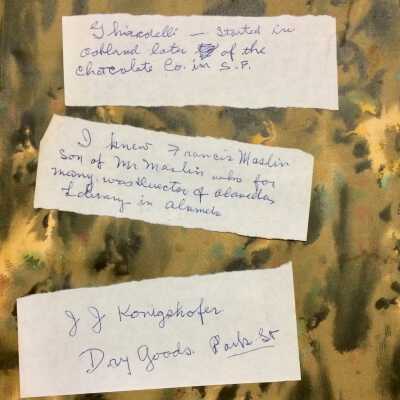 Ghiardelli — started in
Oakland later of the
Chocolate Co. in S.F.
I knew Francis Maslin
son of Mr Maslin who for
many was director of Alamedas
Library in Alameda
J J Konigshofer
Dry Goods. Park St